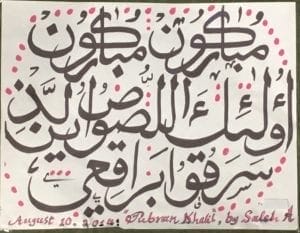 مباركون مباركون
أولئك اللصوص الذين
سرقوا براقعي
August 10. 2014. Jubran Khalil, by Saleh A